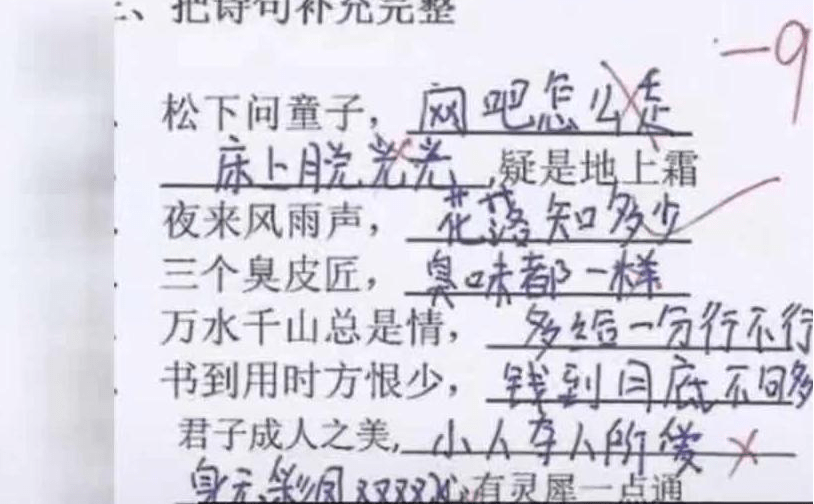 三、把诗句补充完整
-9
松下问童子，网吧怎么走
床上脱光光,疑是地上霜
夜来风雨声，花落知多少
三个臭皮匠，臭味都一样
万水千山总是情，多给一分行不行
书到用时方恨少，钱到月底不多
君子成人之美,小人夺人所爱
身无彩凤双双飞,有灵犀一点通